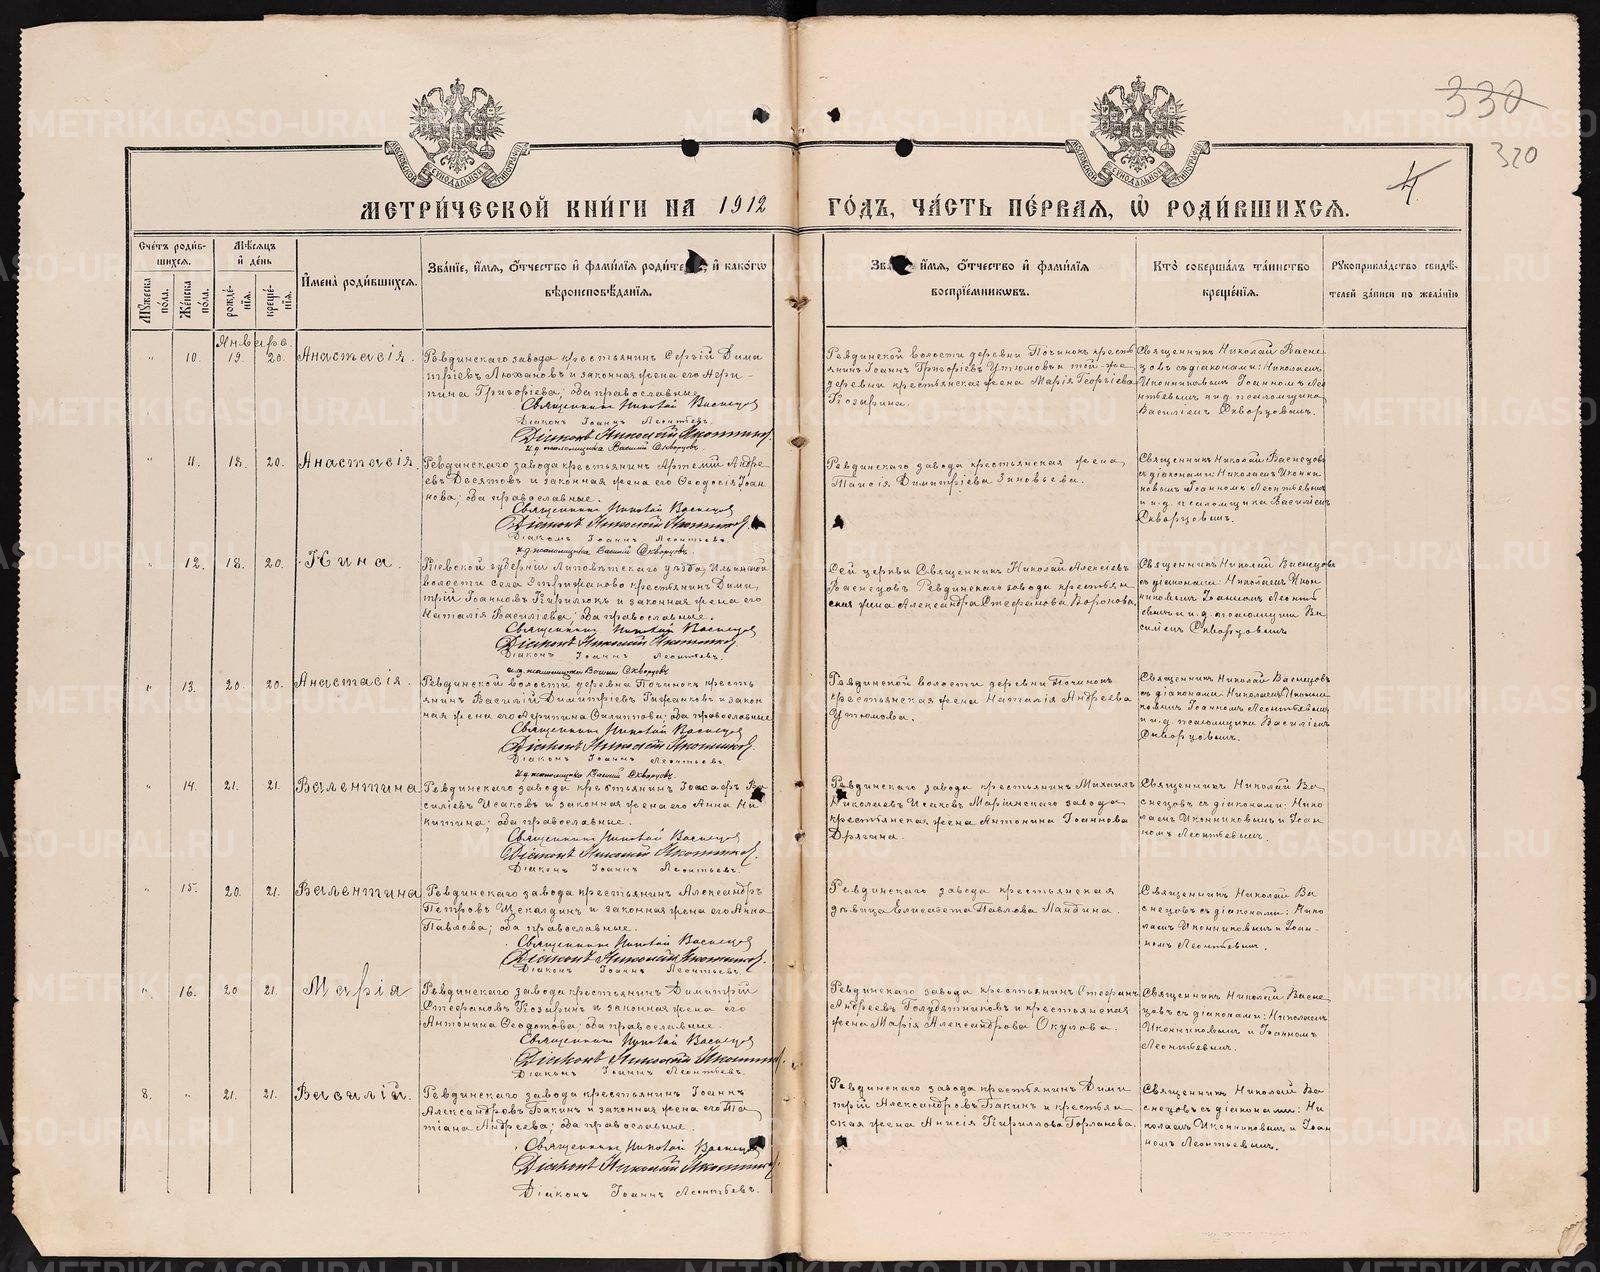 330
320
4
МЕТРИ́ЧЕСКОЙ КНИ́ГИ НА 1912 ГО́ДЪ, ЧА́СТЬ ПЕ́РВАЯ, Ѡ РОДИ́ВШИХСЯ.
Сче́тъ роди́в-
шихся.
Му́жеска по́ла.
Же́нска по́ла.
Мѣ́сяцъ
и де́нь
рожде́-
нія.
креще́-
нія.
Имена̀ роди́вшихся.
Зва́ніе, и́мя, о́тчество и фами́лія роди́те , и како́гѡ
вѣроисповѣ́данія.
и́мя, о́тчество и фами́лія
воспріе́мникѡвъ.
Кто̀ соверша́лъ та́инство
креще́нія.
Рꙋкоприкла́дство свидѣ́-
телей за́писи по жела́нію
Январь.
" 10. 19. 20. Анастасія.
Ревдинскаго завода крестьянинъ Сергій Дими
тріевъ Люхановъ и законная жена его Агри-
пина Григоріева; оба православные.
Священникъ Николай Васнецов
Діаконъ Іоаннъ Леонтьевъ.
Діаконъ Николай Иконников.
и.д. псаломщика Василій Скворцовъ.
Ревдинской волости деревни Починокъ крестья
нинъ Іоаннъ Григоріевъ Утюмовъ и той-же
деревни крестьянская жена Марія Георгіева
Козырина.
Священникъ Николай Васне
цовъ съ діаконами: Николаемъ
Иконниковымъ Іоанномъ Лео
нтьевымъ и и.д. псаломщика
Василіемъ Скворцовымъ.
" 11. 18. 20. Анастасія
Ревдинскаго завода крестьянинъ Артемій Андре
евъ Десятовъ и законная жена его Ѳеодосія Іоан
нова; оба православные.
Священникъ Николай Васнецов
Діаконъ Николай Иконников.
Діаконъ Іоаннъ Леонтьевъ.
и.д. псаломщика Василій Скворцовъ.
Ревдинскаго завода крестьянская жена
Таисія Димитріева Зиновьева.
Священникъ Николай Васнецовъ
съ діаконами: Николаемъ Иконни
ковымъ Іоанномъ Леонтьевымъ
и и.д. псаломщика Василіемъ
Скворцовымъ.
" 12. 18. 20. Нина.
Кіевской губерніи Липовецкаго уѣзда Ильинской
волости села Стрижаково крестьянинъ Дими
трій Іоанновъ Кирилюкъ и законная жена его
Наталія Василіева; оба православные.
Священникъ Николай Васнецов
Діаконъ Николай Иконников
Діаконъ Іоаннъ Леонтьевъ.
и.д. псаломщика Василій Скворцовъ
Сей церкви Священникъ Николай Алексіевъ
Васнецовъ Ревдинскаго завода крестьян
ская жена Александра Стефанова Воронова
Священникъ Николай Васнецовъ
съ діаконами: Николаемъ Икон
никовымъ Іоанномъ Леонть
евымъ и и.д. псаломщика Ва
силіемъ Скворцовымъ
" 13. 20. 20. Анастасія.
Ревдинской волости деревни Починокъ кресть
янинъ Василій Димитріевъ и закон
ная жена его Агрипина Филиппова; оба православные
Священникъ Николай Васнецов
Діаконъ Николай Иконников.
Діаконъ Іоаннъ Леонтьевъ.
и.д. псаломщика Василій Скворцовъ.
Ревдинской волости деревни Починокъ
крестьянская жена Наталія Андреева
Утюмова.
Священникъ Николай Васнецовъ
съ діаконами: Николаемъ Иконни
ковымъ Іоанномъ Леонтьевымъ
и и.д. псаломщика Василіемъ
Скворцовымъ.
" 14. 21. 21. Валентина
Ревдинскаго завода крестьянинъ Іоасафъ Ва
силіевъ Исаковъ и законная жена его Анна Ни
китина; оба православные.
Священникъ Николай Васнецов
Діаконъ Николай Иконников.
Діаконъ Іоаннъ Леонтьевъ.
Ревдинскаго завода крестьянинъ Михаилъ
Николаевъ Исаковъ Маріинскаго завода
крестьянская жена Антонина Іоаннова
Дрягина.
Священникъ Николай Ва
снецовъ съ діаконами: Нико
лаемъ Иконниковымъ и Іоан
номъ Леонтьевымъ.
" 15. 20. 21. Валентина
Ревдинскаго завода крестьянинъ Александръ
Петровъ и законная жена его Анна
Павлова; оба православные.
Священникъ Николай Васнецов
Діаконъ Николай Иконников.
Діаконъ Іоаннъ Леонтьевъ.
Ревдинскаго завода крестьянская
дѣвица Елисавета Павлова Ландина.
Священникъ Николай Ва
снецовъ съ діаконами: Нико
лаемъ Иконниковымъ и Іоан-
номъ Леонтьевымъ.
" 16. 20 21. Марія
Ревдинскаго завода крестьянинъ Димитрій
Стефановъ Козыринъ и законная жена его
Антонина Ѳеодотова; оба православные.
Священникъ Николай Васнецов
Діаконъ Николай Иконников.
Діаконъ Іоаннъ Леонтьевъ.
Ревдинскаго завода крестьянинъ Стефанъ
Андреевъ Голубятниковъ и крестьянская
жена Марія Александрова Окулова.
Священникъ Николай Васне
цовъ съ діаконами: Николаемъ
Иконниковымъ и Іоанномъ
Леонтьевымъ.
8. " 21. 21. Василій.
Ревдинскаго завода крестьянинъ Іоаннъ
Александровъ Бакинъ и законная жена его Та
тіана Андреева; оба православные.
Священникъ Николай Васнецов
Діаконъ Николай Иконников
Діаконъ Іоаннъ Леонтьевъ.
Ревдинскаго завода крестьянинъ Дими
трій Александровъ Бакинъ и крестьян
ская жена Анисія Кириллова Горланова.
Священникъ Николай Ва
снецовъ съ діаконами: Ни
колаемъ Иконниковымъ и Іоан
номъ Леонтьевымъ.
METRIKI.GASO-URAL.RU